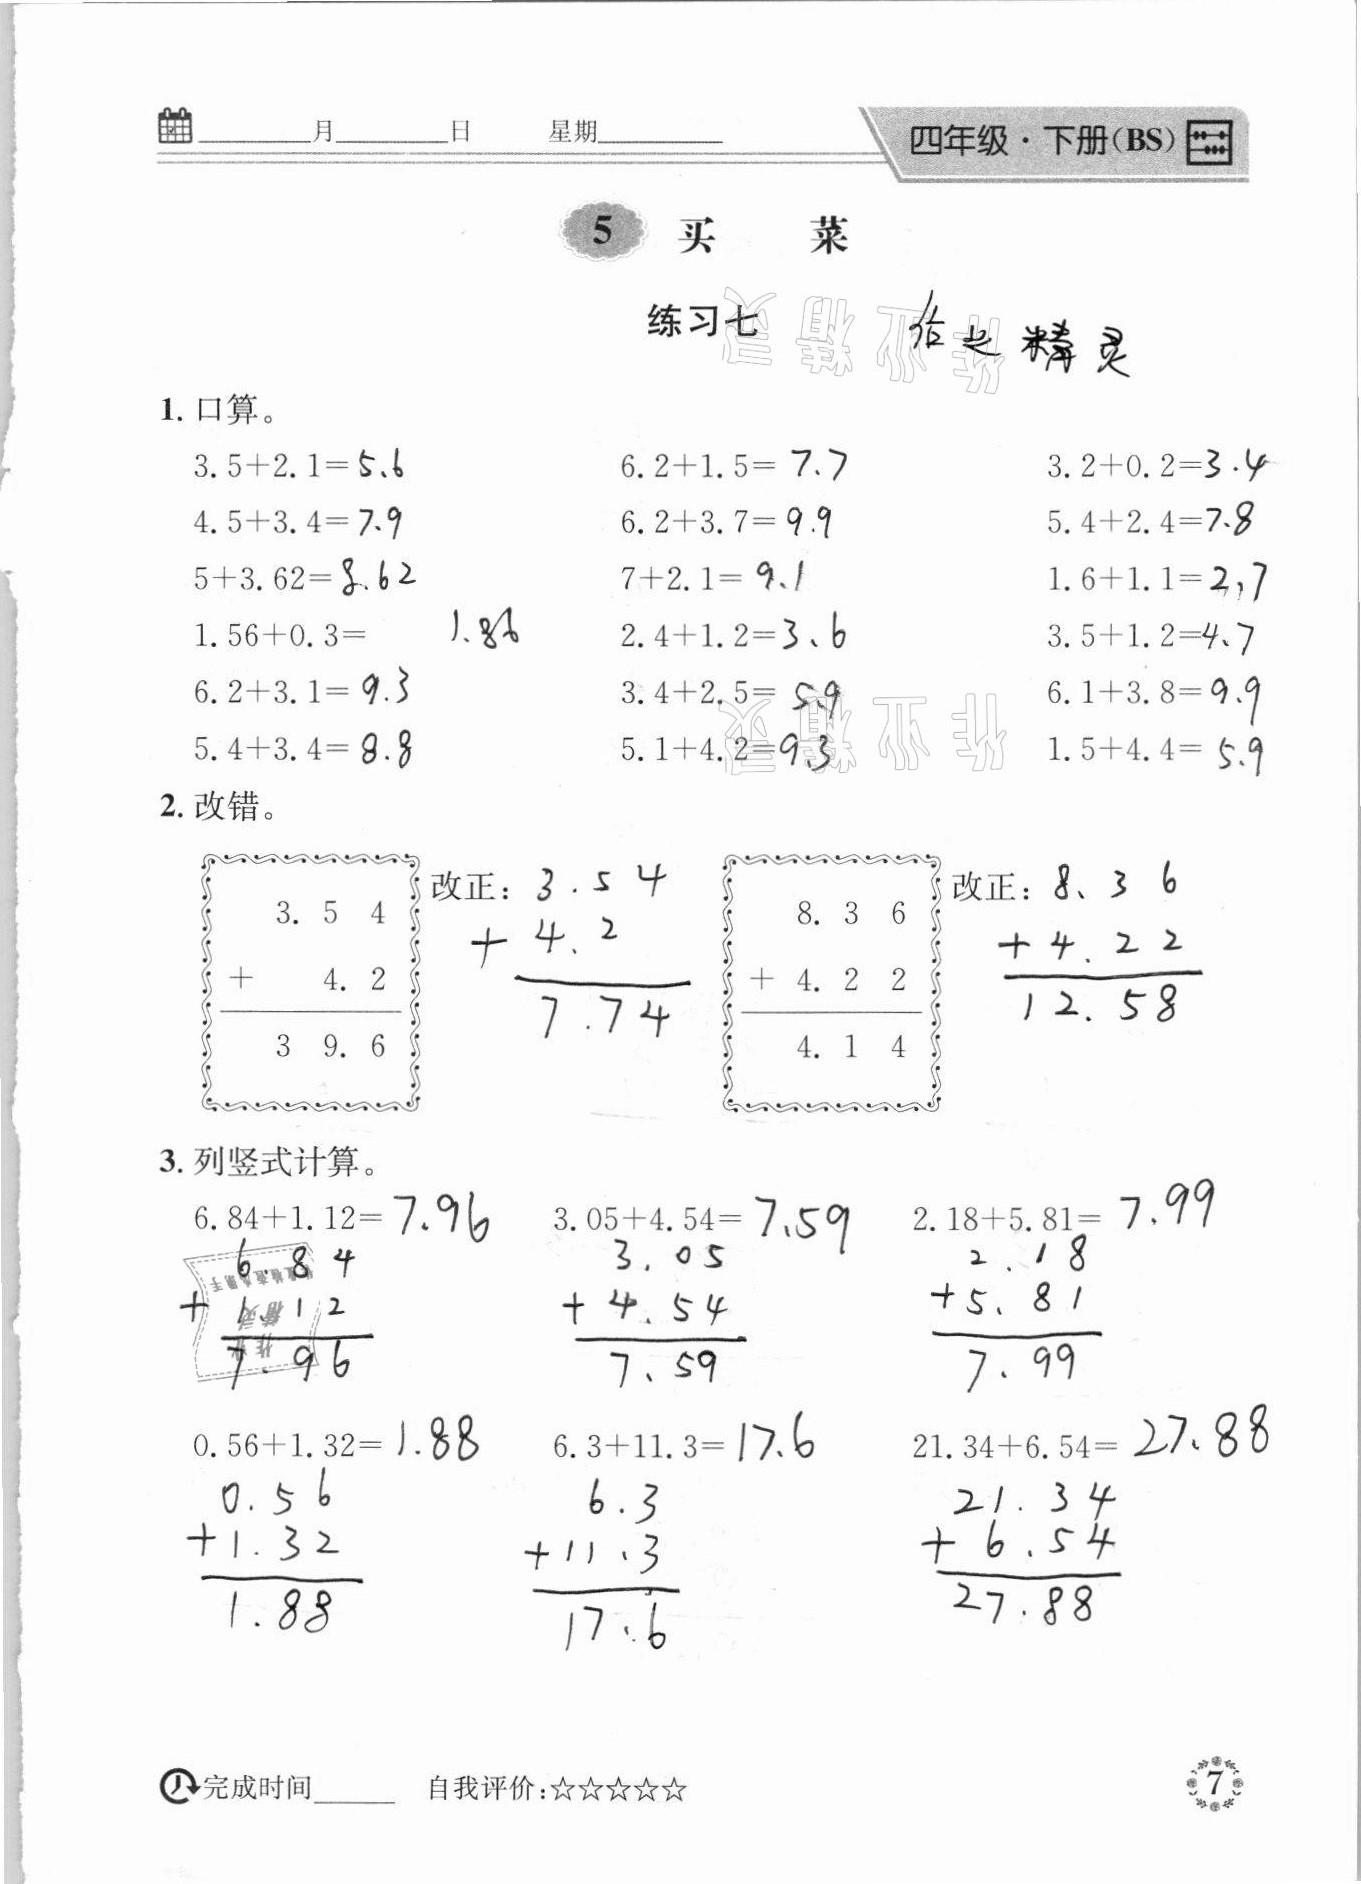 ____月____日 星期____
四年级·下册(BS)
5 买 菜
练习七
作业精灵
作业精灵
1. 口算。
3.5+2.1=5.6 6.2+1.5=7.7 3.2+0.2=3.4
4.5+3.4=7.9 6.2+3.7=9.9 5.4+2.4=7.8
5+3.62=8.62 7+2.1=9.1 1.6+1.1=2.7
1.56+0.3= 1.86 2.4+1.2=3.6 3.5+1.2=4.7
6.2+3.1=9.3 3.4+2.5=5.9 6.1+3.8=9.9
5.4+3.4=8.8 5.1+4.2=9.3 1.5+4.4=5.9
作业精灵
2. 改错。
3.54 改正: 3.54 8.36 改正: 8.36
+ 4.2 + 4.2 + 4.22 + 4.22
39.6 7.74 4.14 12.58
3. 列竖式计算。
6.84+1.12=7.96 3.05+4.54=7.59 2.18+5.81=7.99
6.84 3.05 2.18
+1.12 +4.54 +5.81
7.96 7.59 7.99
作业精灵
0.56+1.32=1.88 6.3+11.3=17.6 21.34+6.54=27.88
0.56 6.3 21.34
+1.32 +11.3 +6.54
1.88 17.6 27.88
完成时间____ 自我评价:☆☆☆☆☆
7